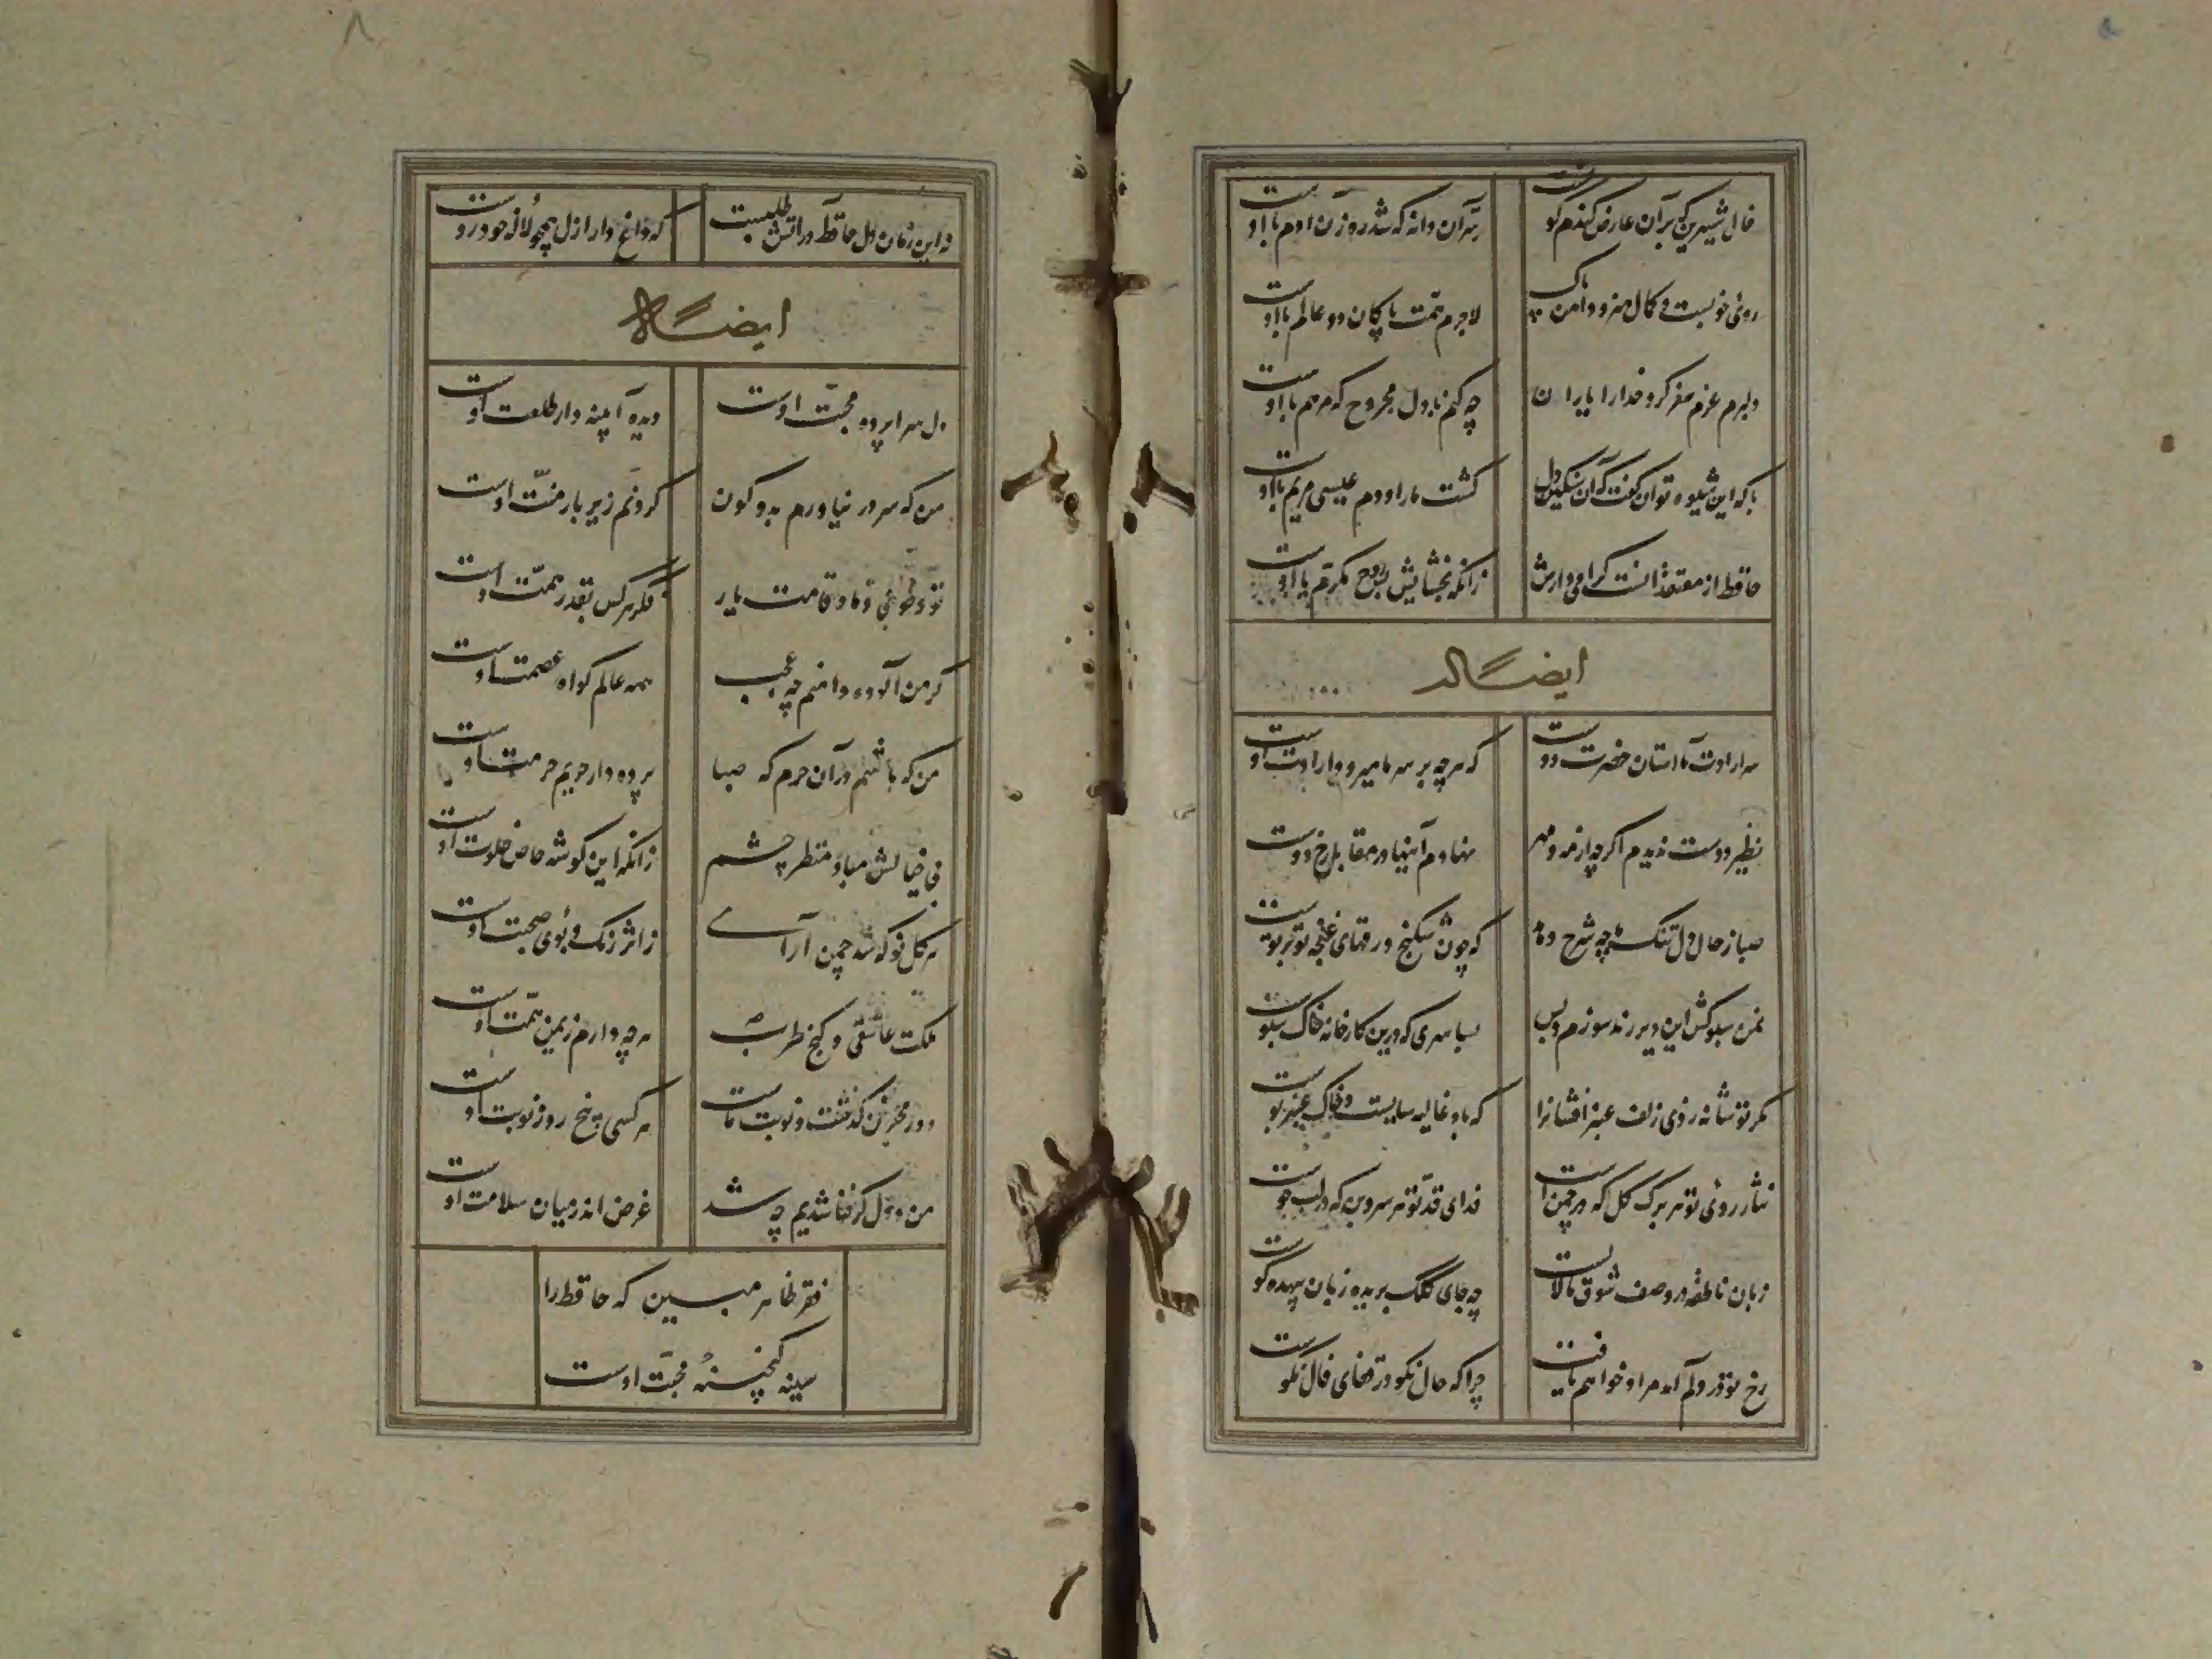 خال شیرین که بر آن عارض گندم گونست
سر آن دانه که شد رهزن آدم با اوست
روی خوبست و کمال هنر و دامن پاک
لاجرم همت پاکان دو عالم با اوست
دلبرم عزم سفر کرد خدا را یاران
چه کنم با دل مجروح که مرهم با اوست
با که این شیوه توان گفت که آن سنگین دل
کشت ما را و دم عیسی مریم با اوست
حافظ از معتقدانست گرامی دارش
زانکه بخشایش روح مکرم با اوست
ایضاً له
سر ارادت ما آستان حضرت دوست
که هر چه بر سر ما میرود ارادت اوست
نظیر دوست ندیدم اگر چه از مه و مهر
نهادم آینها در مقابل رخ دوست
صبا ز حال دل تنگ ما چه شرح دهد
که چون شکنج ورقهای غنچه تو بر توست
نه من سبوکش این دیر رند سوزم و بس
بسا سری که درین کارخانه خاک سبوست
مگر تو شانه زدی زلف عنبر افشانرا
که باد غالیه سایست و خاک عنبر بوست
نثار روی تو هر برگ گل که در چمن است
فدای قد تو هر سروبن که بر لب جوست
زبان ناطقه در وصف شوق ما لالست
چه جای کلک بریده زبان بیهده گوست
رخ تو در دلم آمد مراد خواهم یافت
چرا که حال نکو در قفای فال نکوست
نه این زمان دل حافظ در آتش طلبست
که داغدار ازل همچو لاله خودروست
ایضاً له
دل سراپرده محبت اوست
دیده آیینه دار طلعت اوست
من که سر در نیاورم بدو کون
گردنم زیر بار منت اوست
تو و طوبی و ما و قامت یار
فکر هر کس بقدر همت اوست
گر من آلوده دامنم چه عجب
همه عالم گواه عصمت اوست
من که باشم در آن حرم که صبا
پرده دار حریم حرمت اوست
بی خیالش مباد منظر چشم
زانکه این گوشه خاص خلوت اوست
هر گل نو که شد چمن آرای
ز اثر رنگ و بوی صحبت اوست
ملکت عاشقی و گنج طرب
هر چه دارم ز یمن همت اوست
دور مجنون گذشت و نوبت ماست
هر کسی پنج روز نوبت اوست
من و دل گر فنا شدیم چه شد
غرض اندر میان سلامت اوست
فقر ظاهر مبین که حافظ را
سینه گنجینه محبت اوست